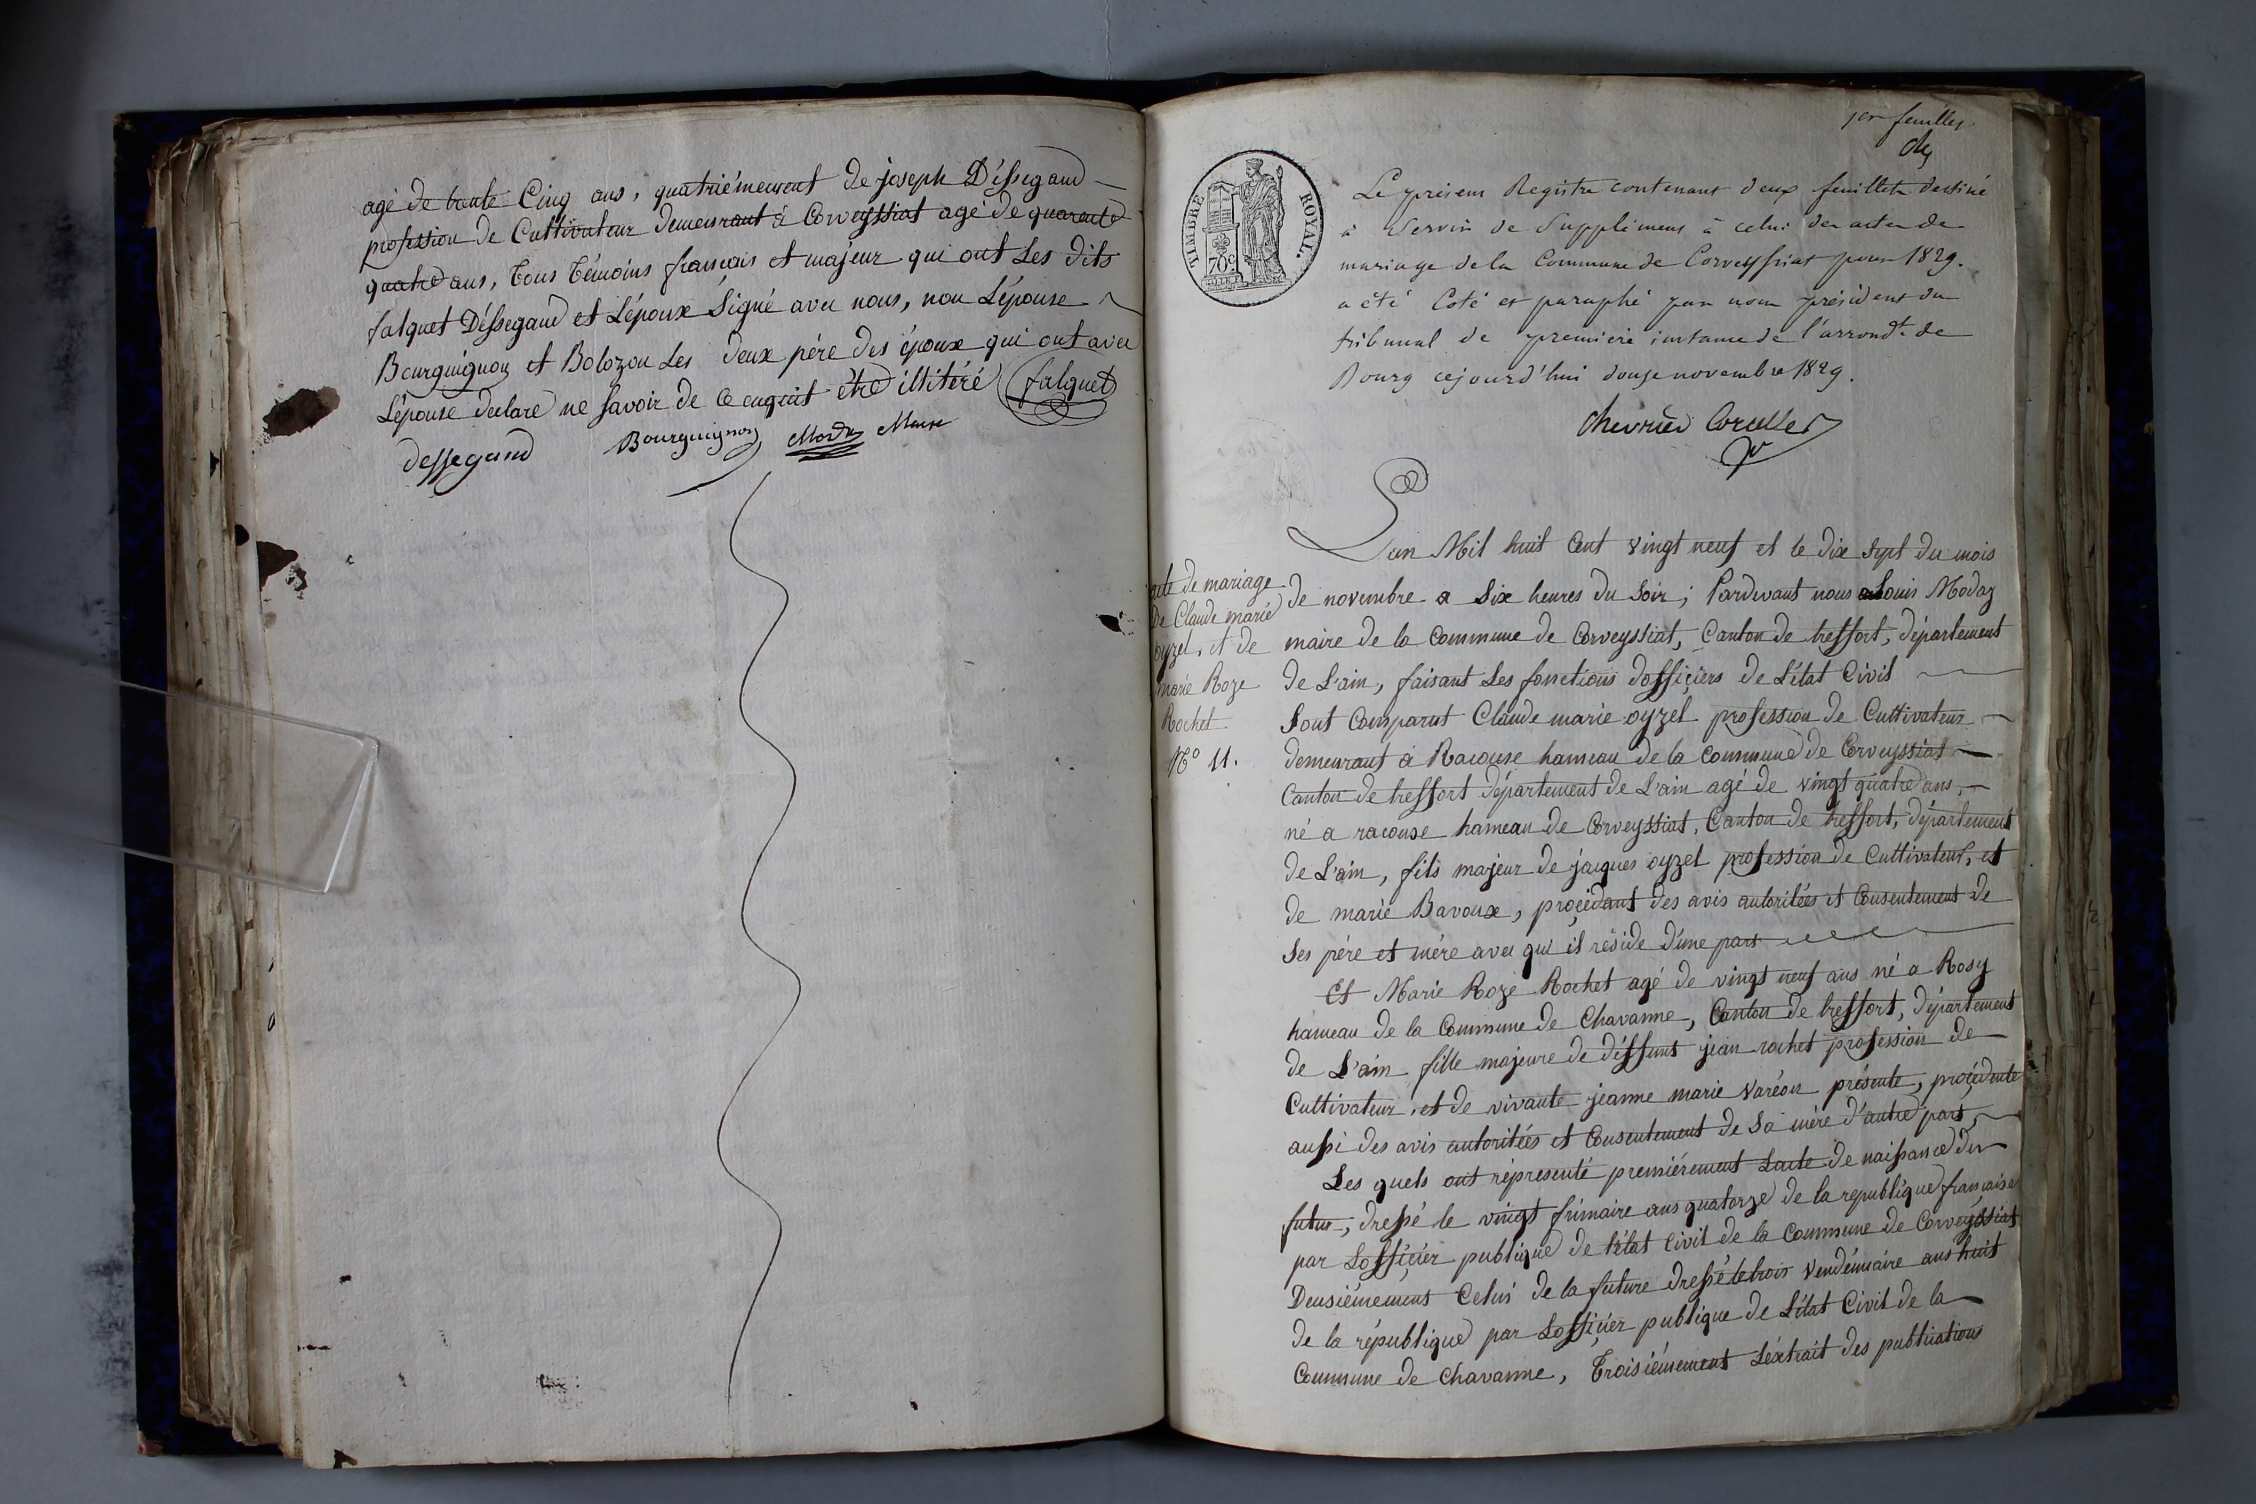 agé de trente Cinq ans, quatriémement de joseph Déssegaud
profession de Cultivateur demeurant à Corveyssiat agé de quarente
quatre ans, tous témoins français et majeur qui ont Les dits
falquet Déssegaud et L'époux Signé avec nous, non L'épouse
Bourguignon et Bolozon Les deux pére des époux qui ont avec
L'épouse declaré ne savoir de ce enquit étre illitéré falquet
dessegaud Bourguignon Modaz Maire
1er feuillet
TIMBRE ROYAL.
70c
Le présent Registre contenant deux feuillets destiné
à Servir de Supplément à celui des actes de
mariage de la Commune de Corveyssiat pour 1829.
a été Coté et paraphé par nous président du
tribunal de premiere instance de l'arrondt de
Bourg cejourd'hui douze novembre 1829.
Chevrier Corcelles
L'an Mil huit Cent vingt neuf et le dix sept du mois
de novembre a Six heures du Soir; Pardevant nous Louis Modaz
maire de la Commune de Corveyssiat, Canton de treffort, département
de L'ain, faisant Les fonctions d'offiçiers de L'état Civil
Sont Comparut Claude marie oyzel profession de Cultivateur
demeurant à Racouse hameau de la Commune de Corveyssiat
Canton de treffort département de L'ain agé de vingt quatre ans,
né a racouse hameau de Corveyssiat, Canton de treffort, département
de L'ain, fils majeur de jacques oyzel profession de Cultivateur, et
de marie Bavoux, proçédant des avis autoritées et Consentement de
Ses pére et mére avec qui il réside d'une part
Et Marie Roze Rochet agé de vingt neuf ans né a Rosy
hameau de la Commune de Chavanne, Canton de treffort, département
de L'ain fille majeure de déffunt jean rochet profession de
Cultivateur, et de vivante jeanne marie Varéon présente, proçédente
aussi des avis autoritées et Consentement de Sa mére d'autre part,
Les quels ont répresenté premiérement L'acte de naissance du
futur, dressé le vingt frimaire ans quatorze de la republique française
par L'offiçier publique de l'état Civil de la Commune de Corveyssiat
Deusiémement Celui de la future dressé le trois Vendémiaire ans huit
de la république par L'offiçier publique de L'état Civil de la
Commune de Chavanne, Troisiémement L'éxtrait des publications
acte de mariage
De Claude marie
oyzel, et de
marie Roze
Rochet
No 11.